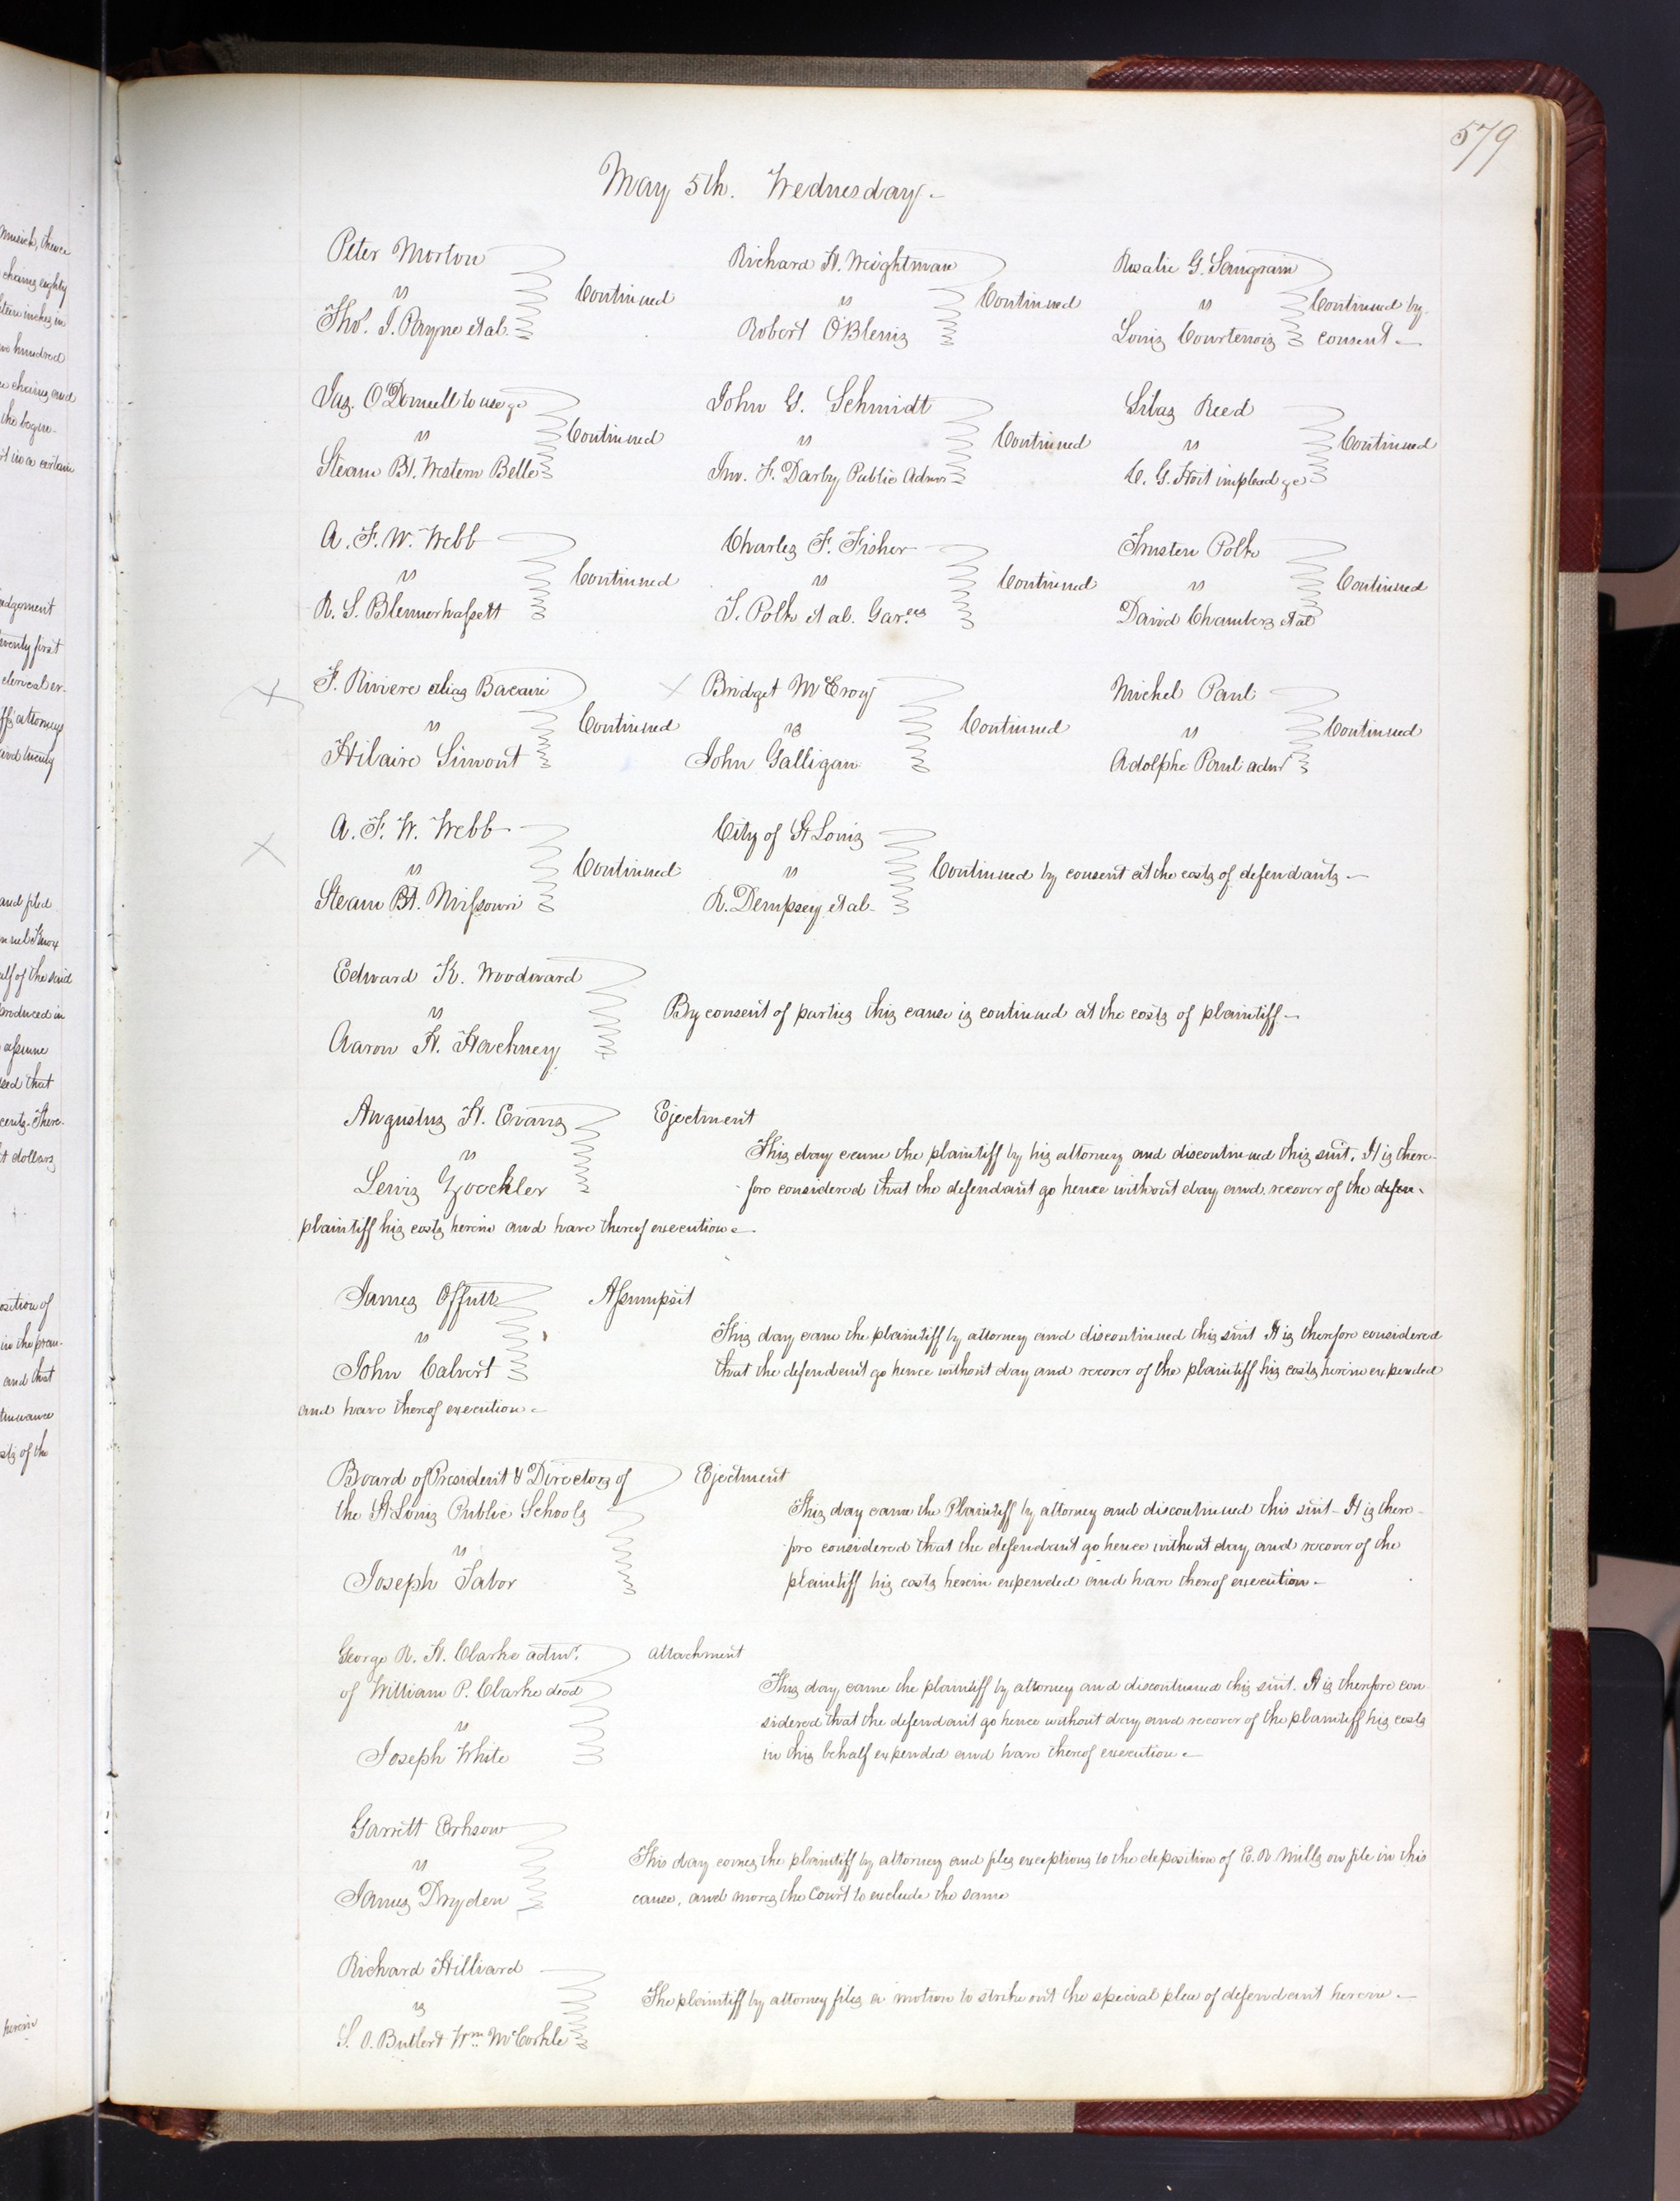 579
May 5th. Wednesday.
Peter Morton
vs
Thos. J. Payne et al.
Continued
Richard H. Weightman
vs
Robert O'Blenis
Continued
Rosalie G. Saugrain
vs
Louis Courtenois
Continued by
consent
Jas. O'Donnell to use &c
vs
Steam Bt. Western Belle
Continued
John G. Schmidt
vs
Jno. F. Darby Public Admr
Continued
Silas Reed
vs
C. G. Hoit implead &c
Continued
A. F. W. Webb
vs
R. S. Blennerhassett
Continued
Charles F. Fisher
vs
T. Polk et al. Gar.ees
Continued
Trusten Polk
vs
David Chambers et al
Continued
F. Riviere alias Bacani
vs
Hilaire Simont
Continued
Bridget McEvoy
vs
John Galligan
Continued
Michel Paul
vs
Adolphe Paul admr
Continued
A. F. W. Webb
vs
Steam Bt. Missouri
Continued
City of St Louis
vs
R. Dempsey et al
Continued by consent at the costs of defendants
Edward K. Woodward
vs
Aaron H. Hackney
By consent of parties this cause is continued at the costs of plaintiff
Augustus H. Evans
vs
Lewis
Ejectment
This day came the plaintiff by his attorney and discontinued this suit. It is there-
fore considered that the defendant go hence without day and recover of the defen
plaintiff his costs herein and have thereof execution
James Offutt
vs
John Calvert
Assumpsit
This day came the plaintiff by attorney and discontinued this suit It is therefore considered
that the defendant go hence without day and recover of the plaintiff his costs herein expended
and have thereof execution
Board of President & Directors of
the St Louis Public Schools
vs
Joseph Tabor
Ejectment
This day came the Plaintiff by attorney and discontinued this suit - It is there-
fore considered that the defendant go hence without day and recover of the
plaintiff his costs herein expended and have thereof execution
George R. H. Clarke admr.
of William P. Clarke decd
vs
Joseph White
Attachment
This day came the plaintiff by attorney and discontinued this suit. It is therefore con
sidered that the defendant go hence without day and recover of the plaintiff his costs
in this behalf expended and have thereof execution
Garrett
vs
James Dryden
This day comes the plaintiff by attorney and files exceptions to the deposition of E. R. Mills on file in this
cause, and moves the Court to exclude the same
Richard Hilliard
vs
S. O. Butler & Wm McCorkle
The plaintiff by attorney files a motion to strike out the special plea of defendant herein